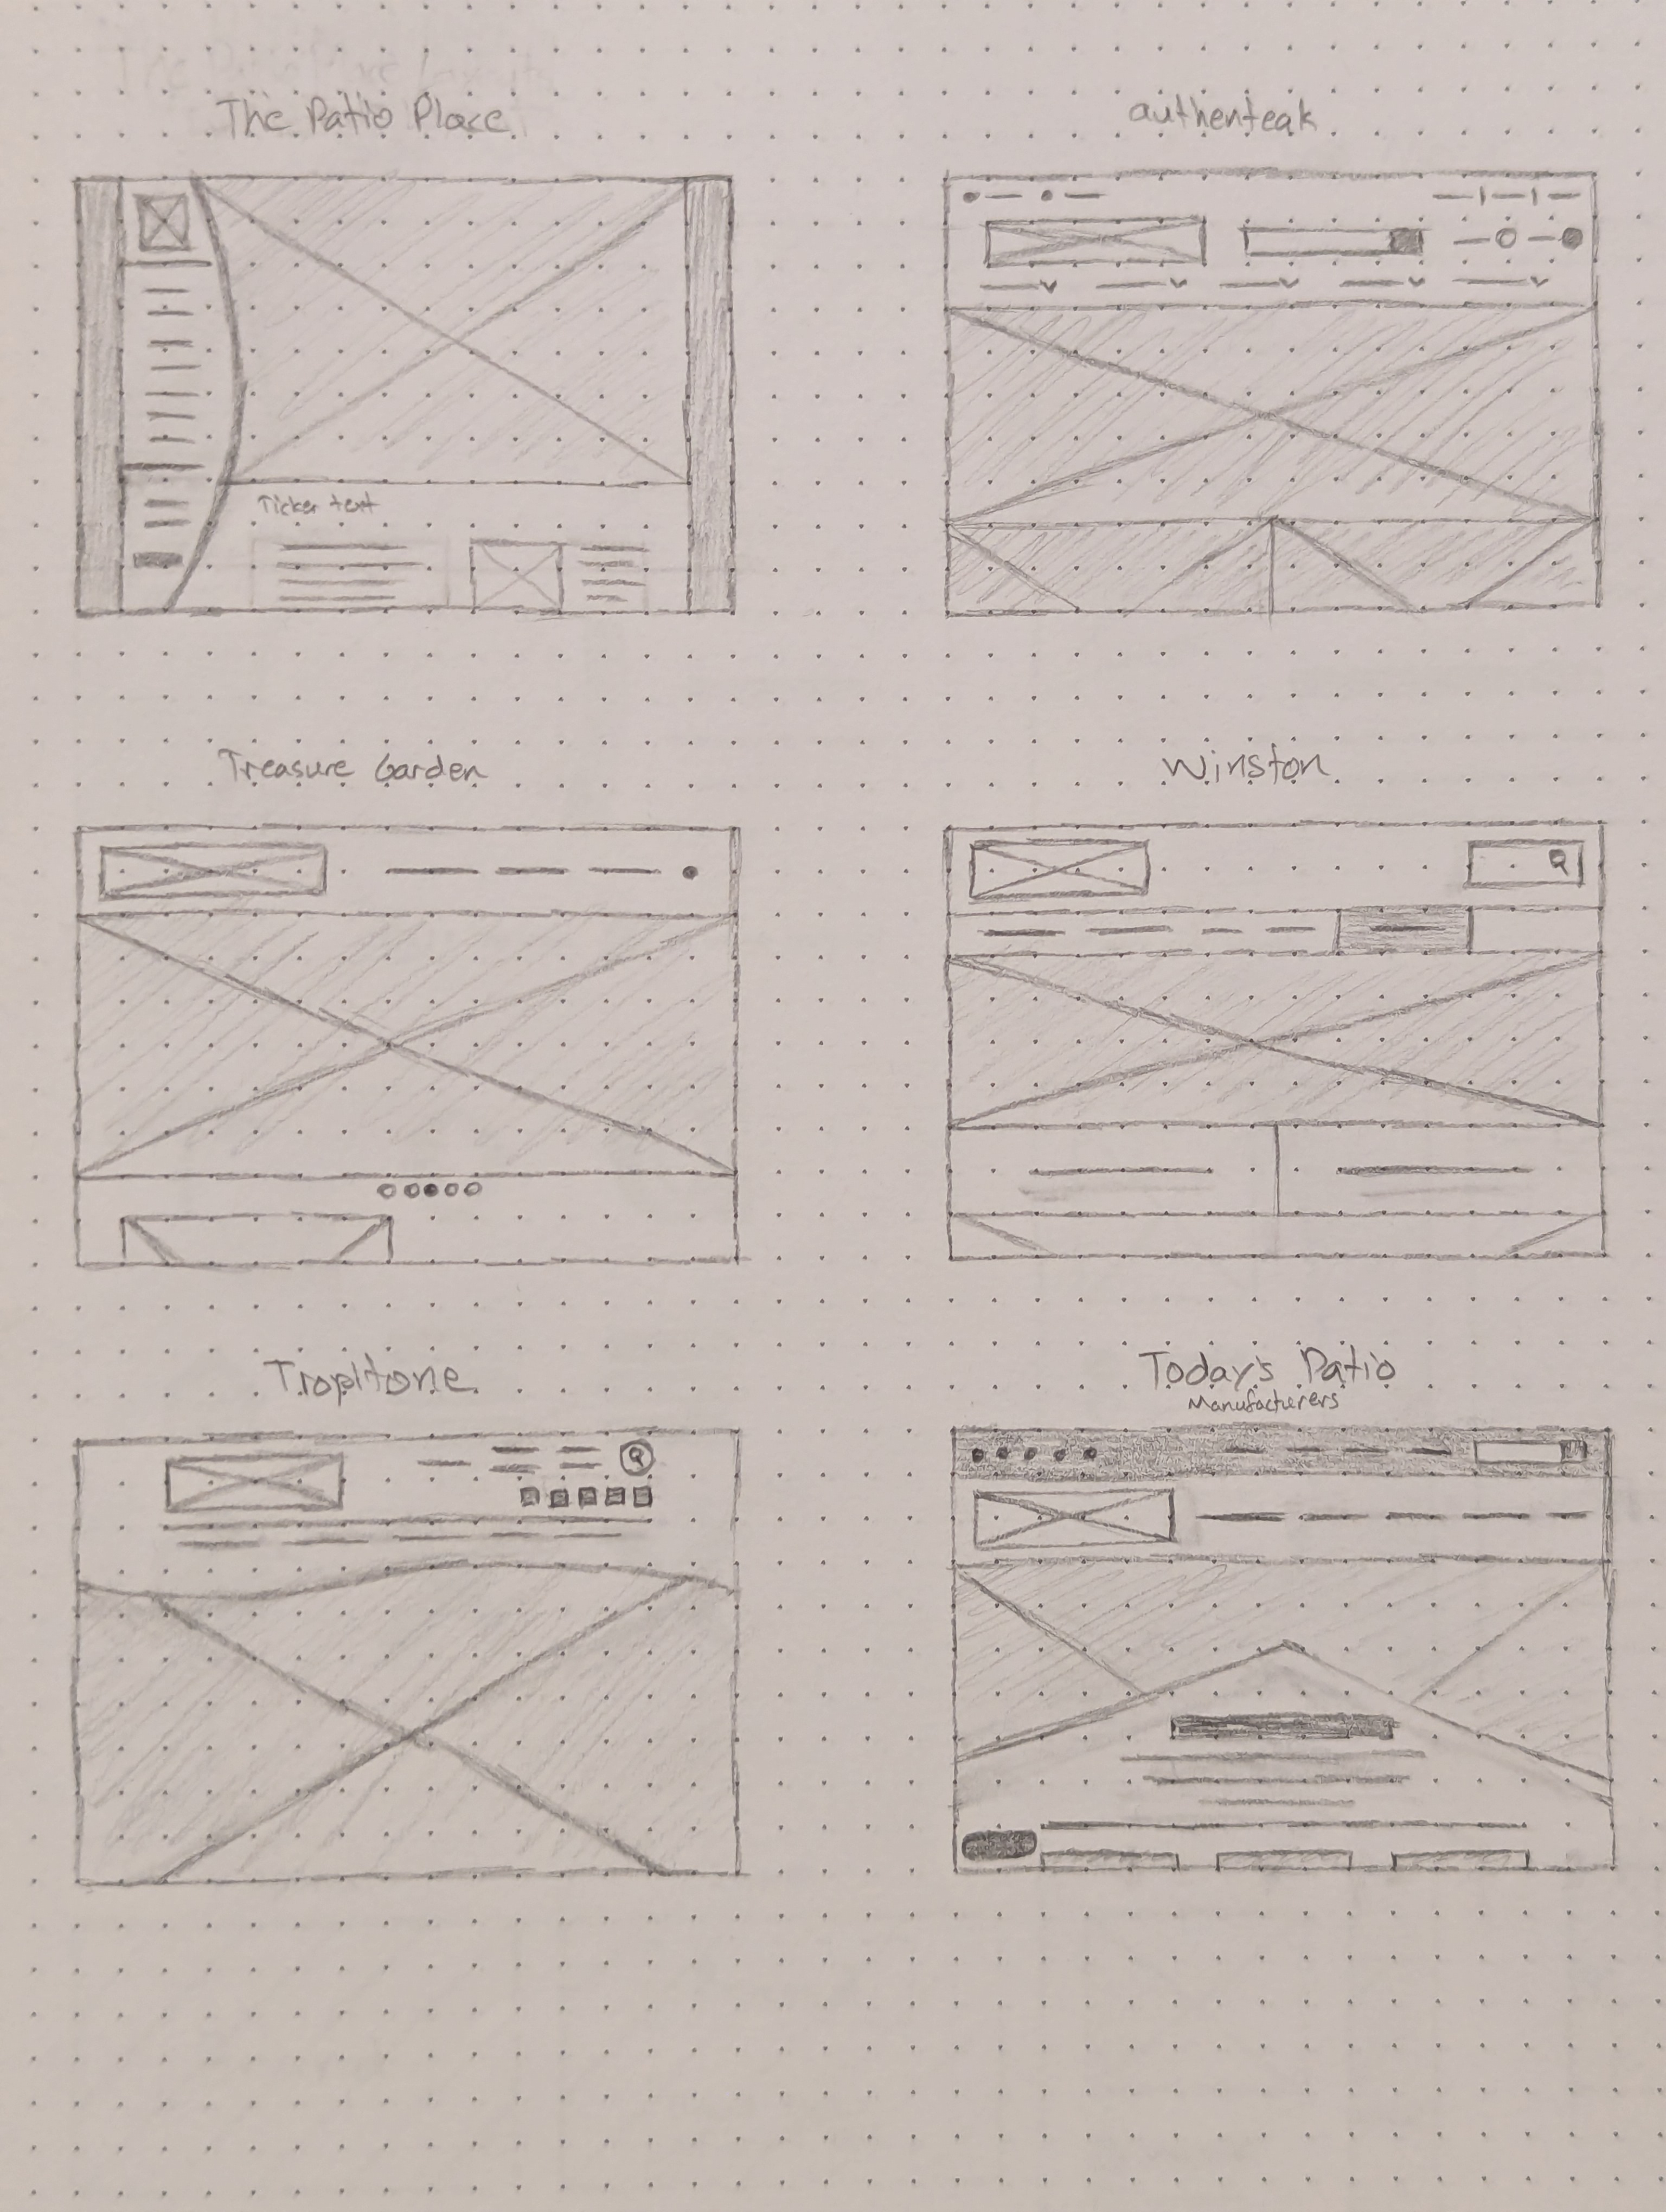 The Patio Place
authenteak
Ticker text
Treasure Garden
Winston
Tropitone
Today's Patio
Manufacturers